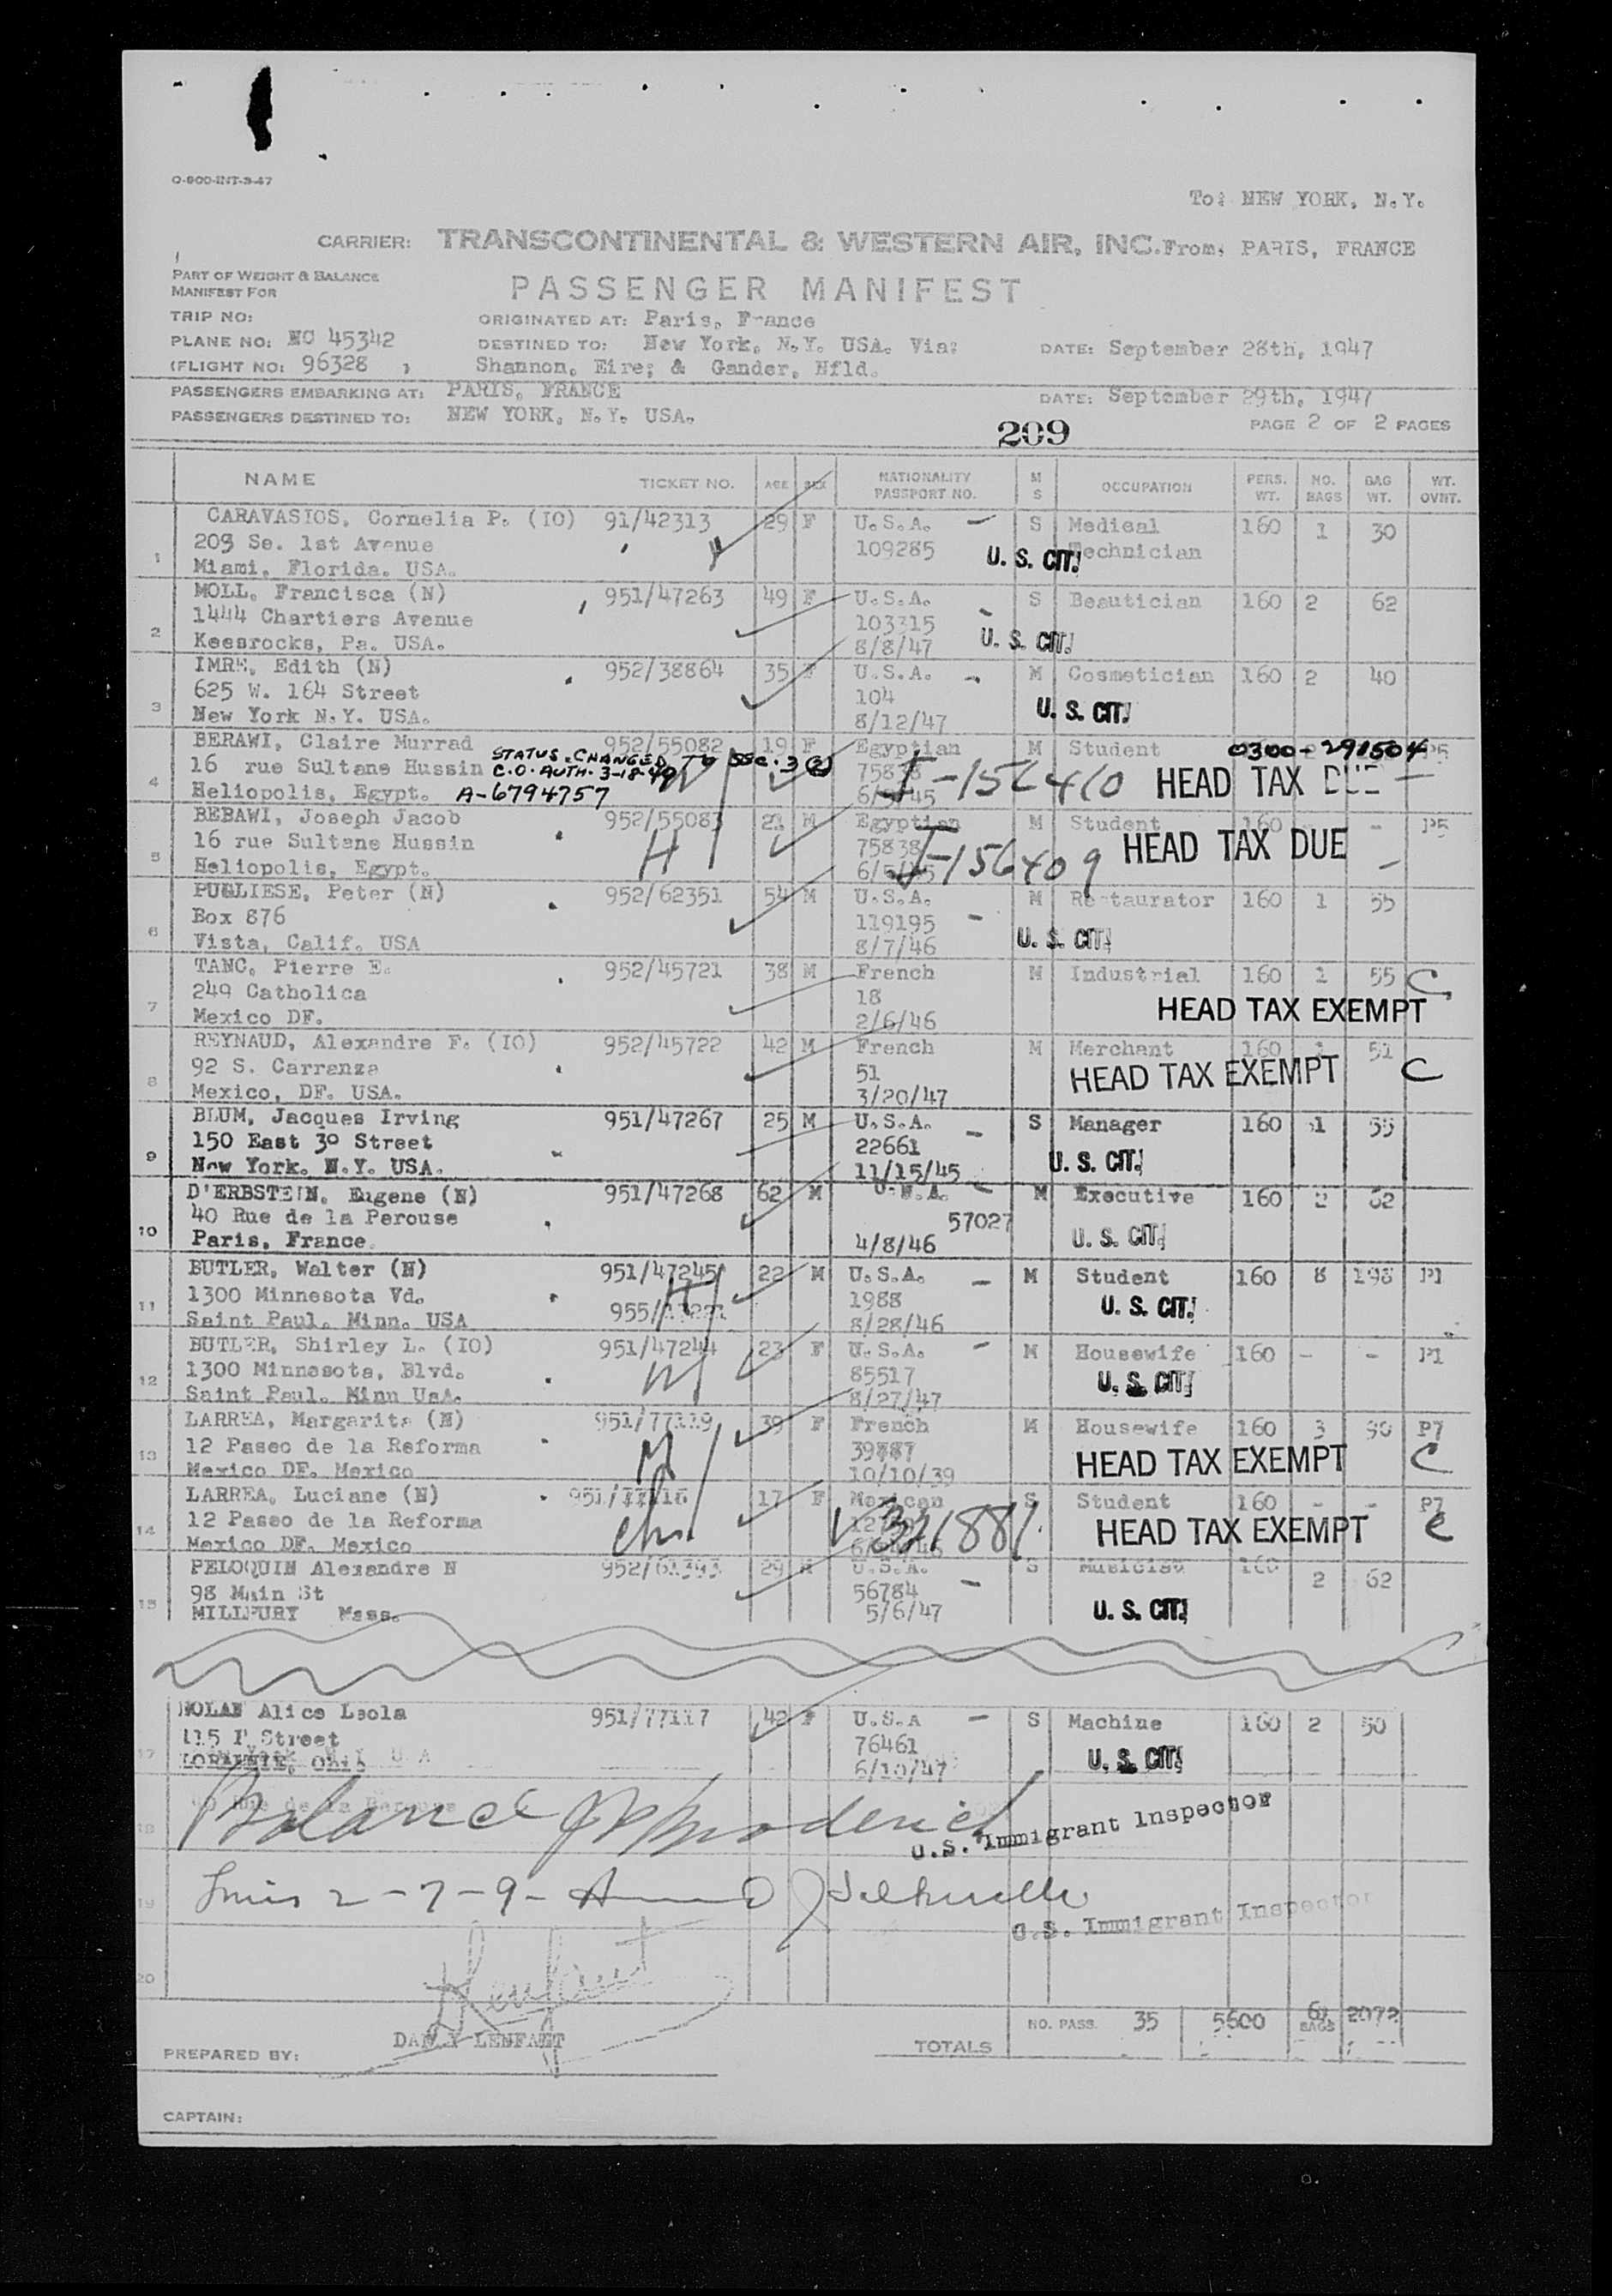 O-800-INT-3-47
To: NEW YORK, N.Y.
CARRIER: TRANSCONTINENTAL & WESTERN AIR, INC. From, PARIS, FRANCE
PART OF WEIGHT & BALANCE
MANIFEST FOR
PASSENGER MANIFEST
TRIP NO: ORIGINATED AT: Paris, France
PLANE NO: NC 45342 DESTINED TO: New York, N.Y. USA. Via: DATE: September 28th, 1947
(FLIGHT NO: 96328 ) Shannon, Eire; & Gander, Nfld.
PASSENGERS EMBARKING AT: PARIS, FRANCE DATE: September 29th, 1947
PASSENGERS DESTINED TO: NEW YORK, N.Y. USA. PAGE 2 OF 2 PAGES
209
NAME TICKET NO. AGE SEX NATIONALITY PASSPORT NO. M S OCCUPATION PERS. WT. NO. BAGS BAG WT. WT. OVNT.
CARAVASIOS, Cornelia P. (IO) 91/42313 29 F U.S.A. — S Medical 160 1 30
209 Se. 1st Avenue 109285 U. S. CIT. Technician
1 Miami, Florida. USA.
MOLL, Francisca (N) 951/47263 49 F U.S.A. S Beautician 160 2 62
1444 Chartiers Avenue 103315
2 Keesrocks, Pa. USA. 8/8/47 U. S. CIT.
IMRE, Edith (N) 952/38864 35 F U.S.A. M Cosmetician 160 2 40
625 W. 164 Street 104
3 New York N.Y. USA. 8/12/47 U. S. CIT.
BERAWI, Claire Murrad 952/55082 19 F Egyptian M Student 0300-291504 P5
STATUS CHANGED TO SSC. 3 (2)
16 rue Sultane Hussin C.O. AUTH. 3-18-49 I-156410 HEAD TAX DUE
4 Heliopolis, Egypt. A-6794757
BEBAWI, Joseph Jacob 952/55083 21 M Egyptian M Student 160 - P5
16 rue Sultane Hussin H 75838 I-156409 HEAD TAX DUE
5 Heliopolis, Egypt.
PUGLIESE, Peter (N) 952/62351 54 M U.S.A. M Restaurator 160 1 55
Box 876 119195
6 Vista, Calif. USA 8/7/46 U. S. CIT.
TANC, Pierre E. 952/45721 38 M French M Industrial 160 1 55 C
249 Catholica 18 HEAD TAX EXEMPT
7 Mexico DF. 2/6/46
REYNAUD, Alexandre F. (IO) 952/45722 42 M French M Merchant 160 1 51
92 S. Carranza 51 HEAD TAX EXEMPT C
8 Mexico, DF. USA. 3/20/47
BLUM, Jacques Irving 951/47267 25 M U.S.A. S Manager 160 1 55
150 East 30 Street 22661
9 New York. N.Y. USA. 11/15/45 U. S. CIT.
D'ERBSTEIN, Eugene (N) 951/47268 62 M U.S.A. M Executive 160 2 62
40 Rue de la Perouse 57027
10 Paris, France. 4/8/46 U. S. CIT.
BUTLER, Walter (N) 951/47245 22 M U.S.A. M Student 160 8 198 P1
1300 Minnesota Vd. 1988 U. S. CIT.
11 Saint Paul. Minn. USA 8/28/46
BUTLER, Shirley L. (IO) 951/47244 23 F U.S.A. M Housewife 160 - - P1
1300 Minnasota, Blvd. 85517 U. S. CIT.
12 Saint Paul. Minn UsA. 8/27/47
LARREA, Margarita (N) 951/77119 39 F French M Housewife 160 3 90 P7
12 Paseo de la Reforma 39887 HEAD TAX EXEMPT C
13 Mexico DF. Mexico 10/10/39
LARREA, Luciane (N) 17 F Mexican S Student 160 - - P7
12 Paseo de la Reforma HEAD TAX EXEMPT C
14 Mexico DF. Mexico
PELOQUIN Alexandre N 952/61393 29 M U.S.A. S Musicist 160 2 62
98 Main St 56784
15 MILLBURY Mass. 5/6/47 U. S. CIT.
NOLAN Alice Leola 951/77117 42 F U.S.A — S Machine 160 2 50
115 F Street 76461
17 LORRAINE, Ohio 6/10/47 U. S. CIT.
18 Balance U.S. Immigrant Inspector
19 Lines 2-7-9- U.S. Immigrant Inspector
20
DANNY LENFANT
PREPARED BY:
TOTALS NO. PASS. 35 5600 BAGS 2072
CAPTAIN: